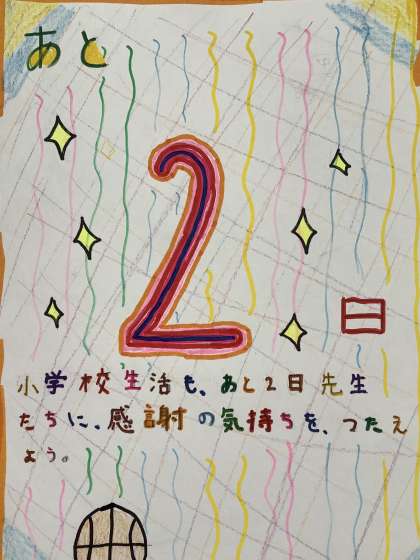 あと
2
日
小学校生活も、あと2日先生
たちに、感謝の気持ちを、つたえ
よう。